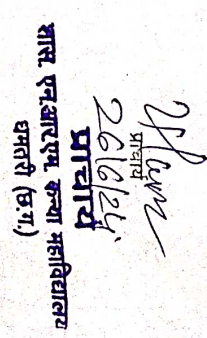 प्राचार्य
26/6/24
प्राचार्य
शास. एन.आर.एम. कन्या महाविद्यालय
धमतरी (छ.ग.)